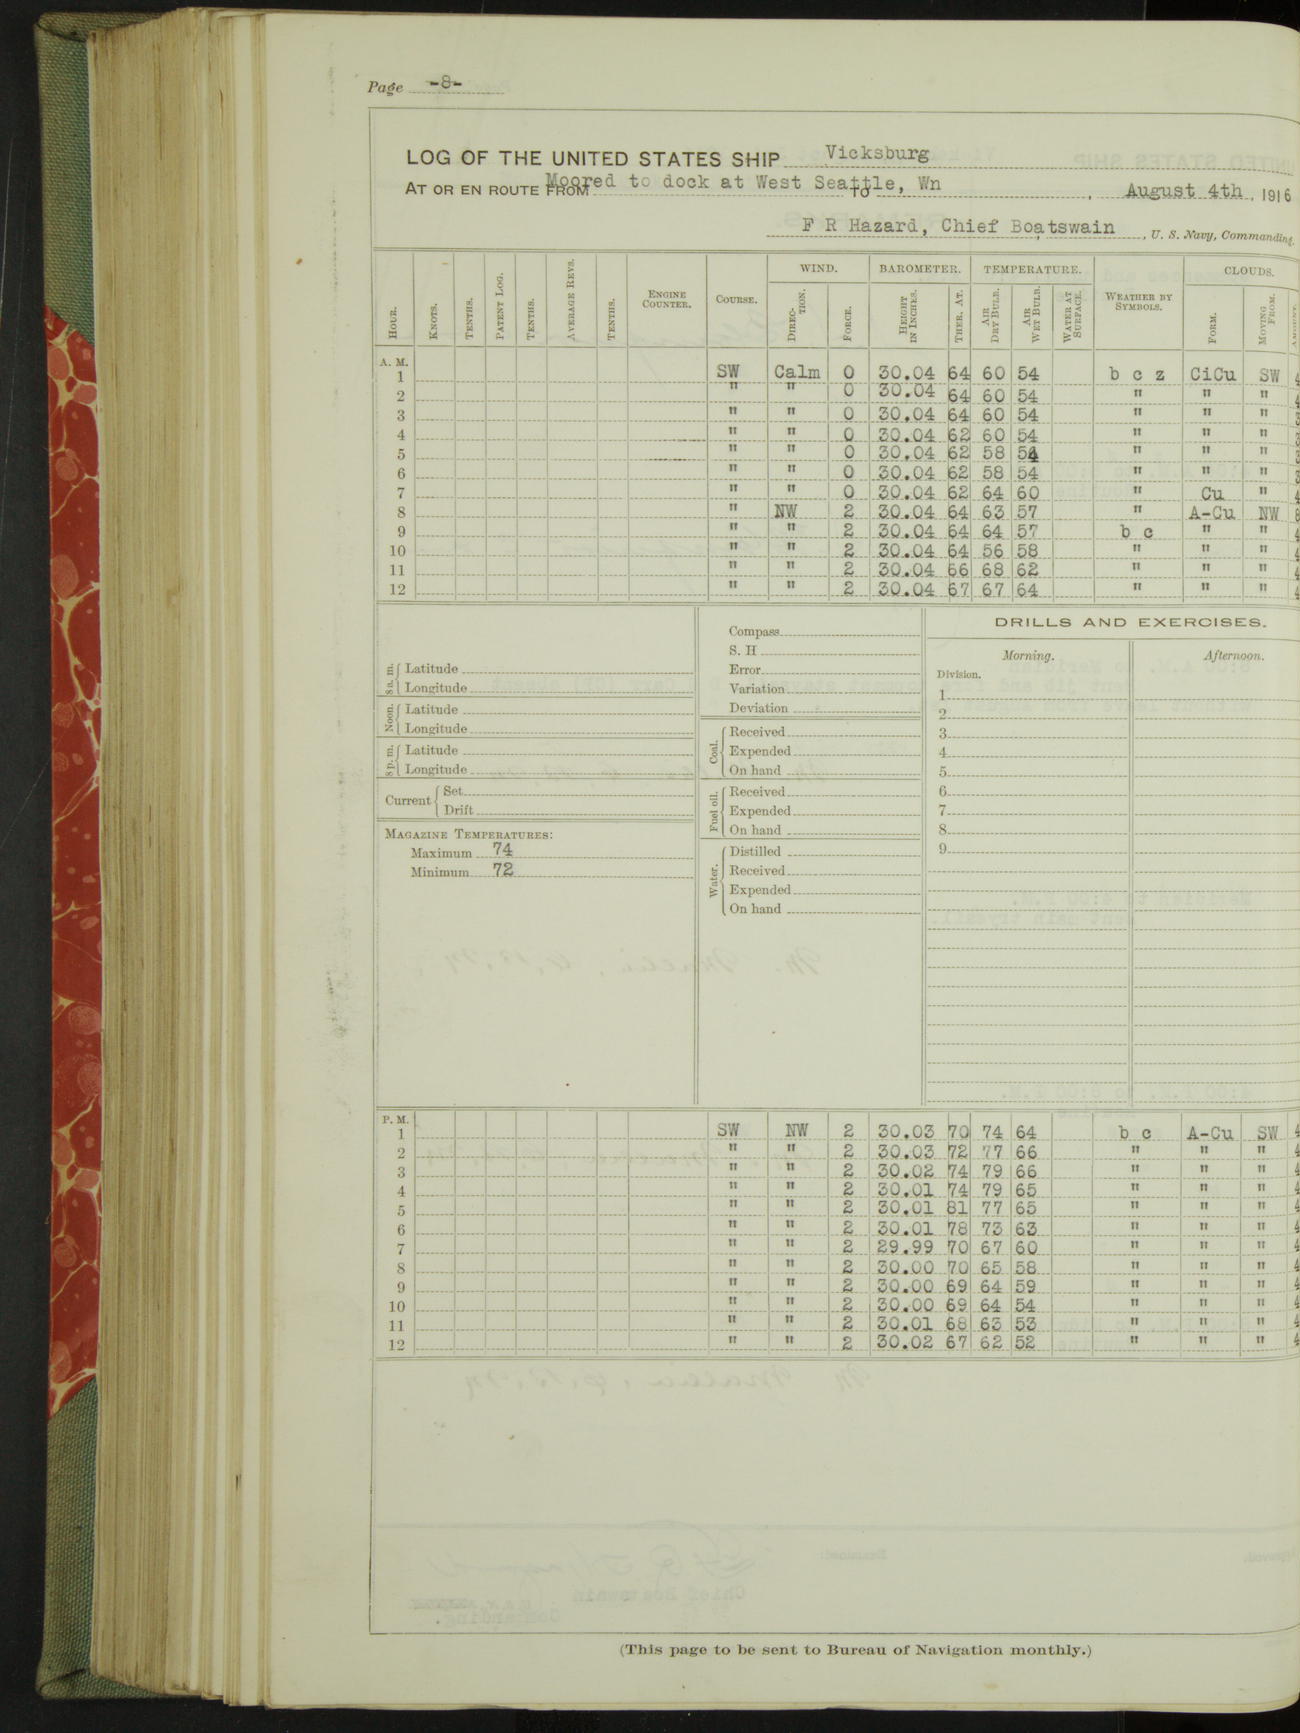 Page -8-
LOG OF THE UNITED STATES SHIP Vicksburg
AT OR EN ROUTE FROM Moored to dock at West Seattle, Wn TO , August 4th, 1916
F R Hazard, Chief Boatswain, U. S. Navy, Commanding.
HOUR. KNOTS. TENTHS. PATENT LOG. TENTHS. AVERAGE REVS. TENTHS. ENGINE COUNTER. COURSE. WIND. DIRECTION. FORCE. BAROMETER. HEIGHT IN INCHES. THER. AT. TEMPERATURE. AIR DRY BULB. AIR WET BULB. WATER AT SURFACE. WEATHER BY SYMBOLS. CLOUDS. FORM. MOVING FROM. AMOUNT.
A. M.
1 SW Calm 0 30.04 64 60 54 b c z CiCu SW 4
2 " " 0 30.04 64 60 54 " " " 4
3 " " 0 30.04 64 60 54 " " " 3
4 " " 0 30.04 62 60 54 " " " 3
5 " " 0 30.04 62 58 54 " " " 3
6 " " 0 30.04 62 58 54 " " " 3
7 " " 0 30.04 62 64 60 " Cu " 4
8 " NW 2 30.04 64 63 57 " A-Cu NW 8
9 " " 2 30.04 64 64 57 b c " " 4
10 " " 2 30.04 64 56 58 " " " 4
11 " " 2 30.04 66 68 62 " " " 4
12 " " 2 30.04 67 67 64 " " " 4
8 a. m. Latitude
Longitude
Noon. Latitude
Longitude
8 p. m. Latitude
Longitude
Current Set
Drift
MAGAZINE TEMPERATURES:
Maximum 74
Minimum 72
Compass
S. H
Error
Variation
Deviation
Coal. Received
Expended
On hand
Fuel oil. Received
Expended
On hand
Water. Distilled
Received
Expended
On hand
DRILLS AND EXERCISES.
Morning. Afternoon.
Division.
1
2
3
4
5
6
7
8
9
P. M.
1 SW NW 2 30.03 70 74 64 b c A-Cu SW 4
2 " " 2 30.03 72 77 66 " " " 4
3 " " 2 30.02 74 79 66 " " " 4
4 " " 2 30.01 74 79 65 " " " 4
5 " " 2 30.01 81 77 65 " " " 4
6 " " 2 30.01 78 73 63 " " " 4
7 " " 2 29.99 70 67 60 " " " 4
8 " " 2 30.00 70 65 58 " " " 4
9 " " 2 30.00 69 64 59 " " " 4
10 " " 2 30.00 69 64 54 " " " 4
11 " " 2 30.01 68 63 53 " " " 4
12 " " 2 30.02 67 62 52 " " " 4
(This page to be sent to Bureau of Navigation monthly.)